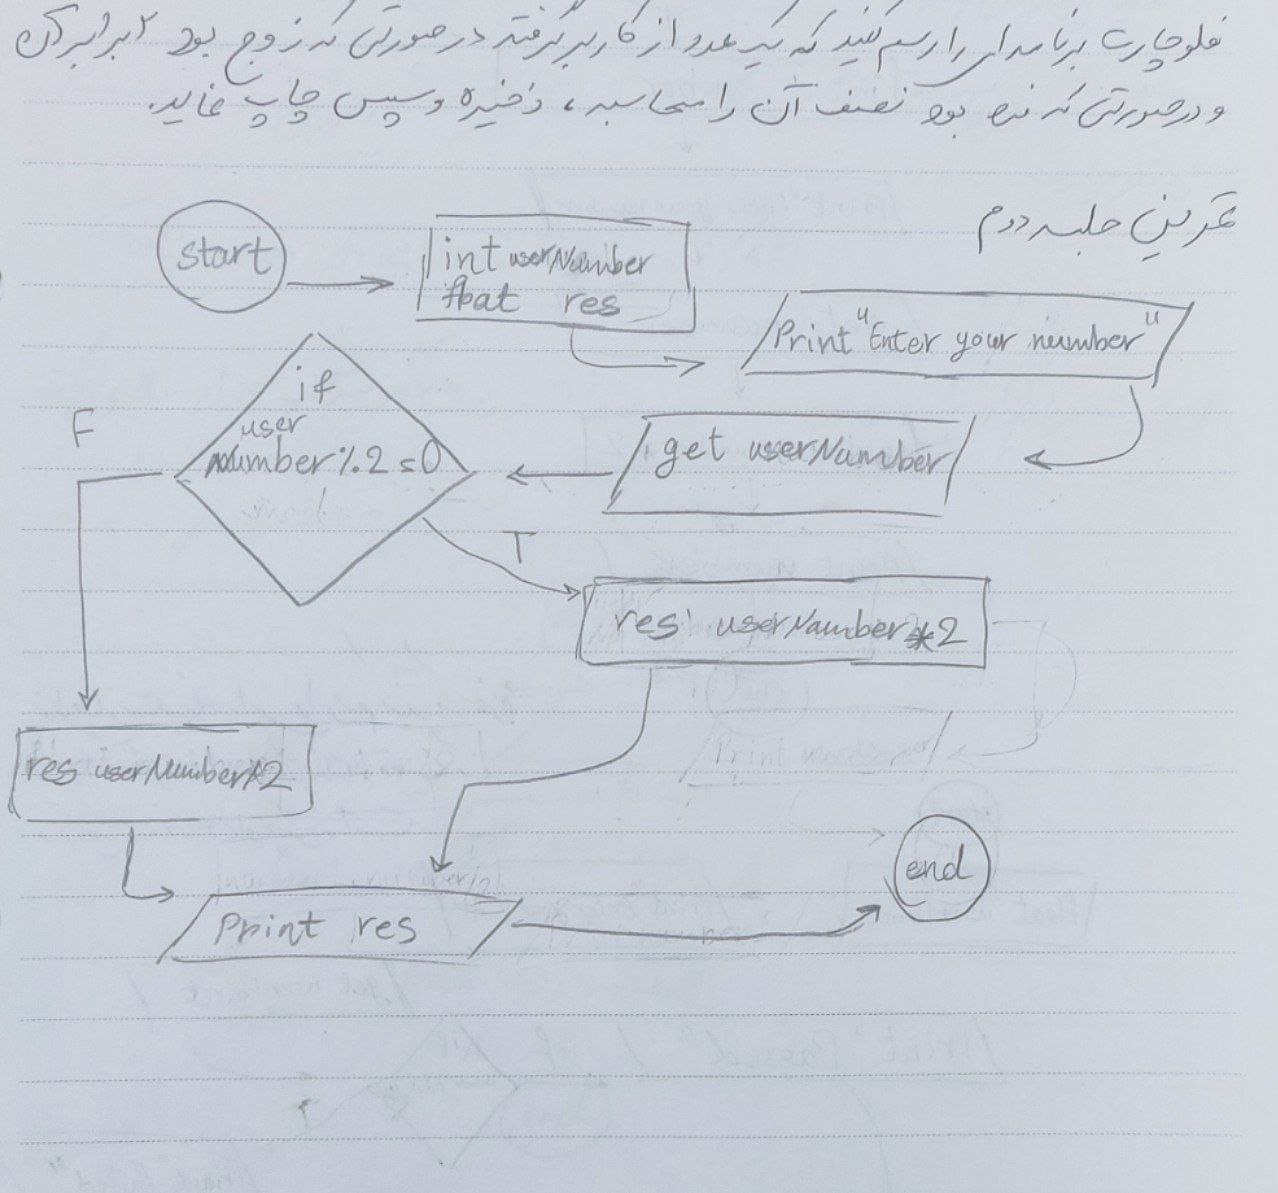 فلوچارت برنامه ای را رسم کنید که یک عدد از کاربر گرفته در صورتی که زوج بود ۲ برابر آن
و در صورتی که فرد بود نصف آن را محاسبه ، ذخیره و سپس چاپ نماید.
تمرین جلسه دوم
start
int userNumber
float res
Print "Enter your number"
get userNumber
if
user
number % 2 = 0
F
T
res userNumber * 2
res userNumber 2
Print res
end